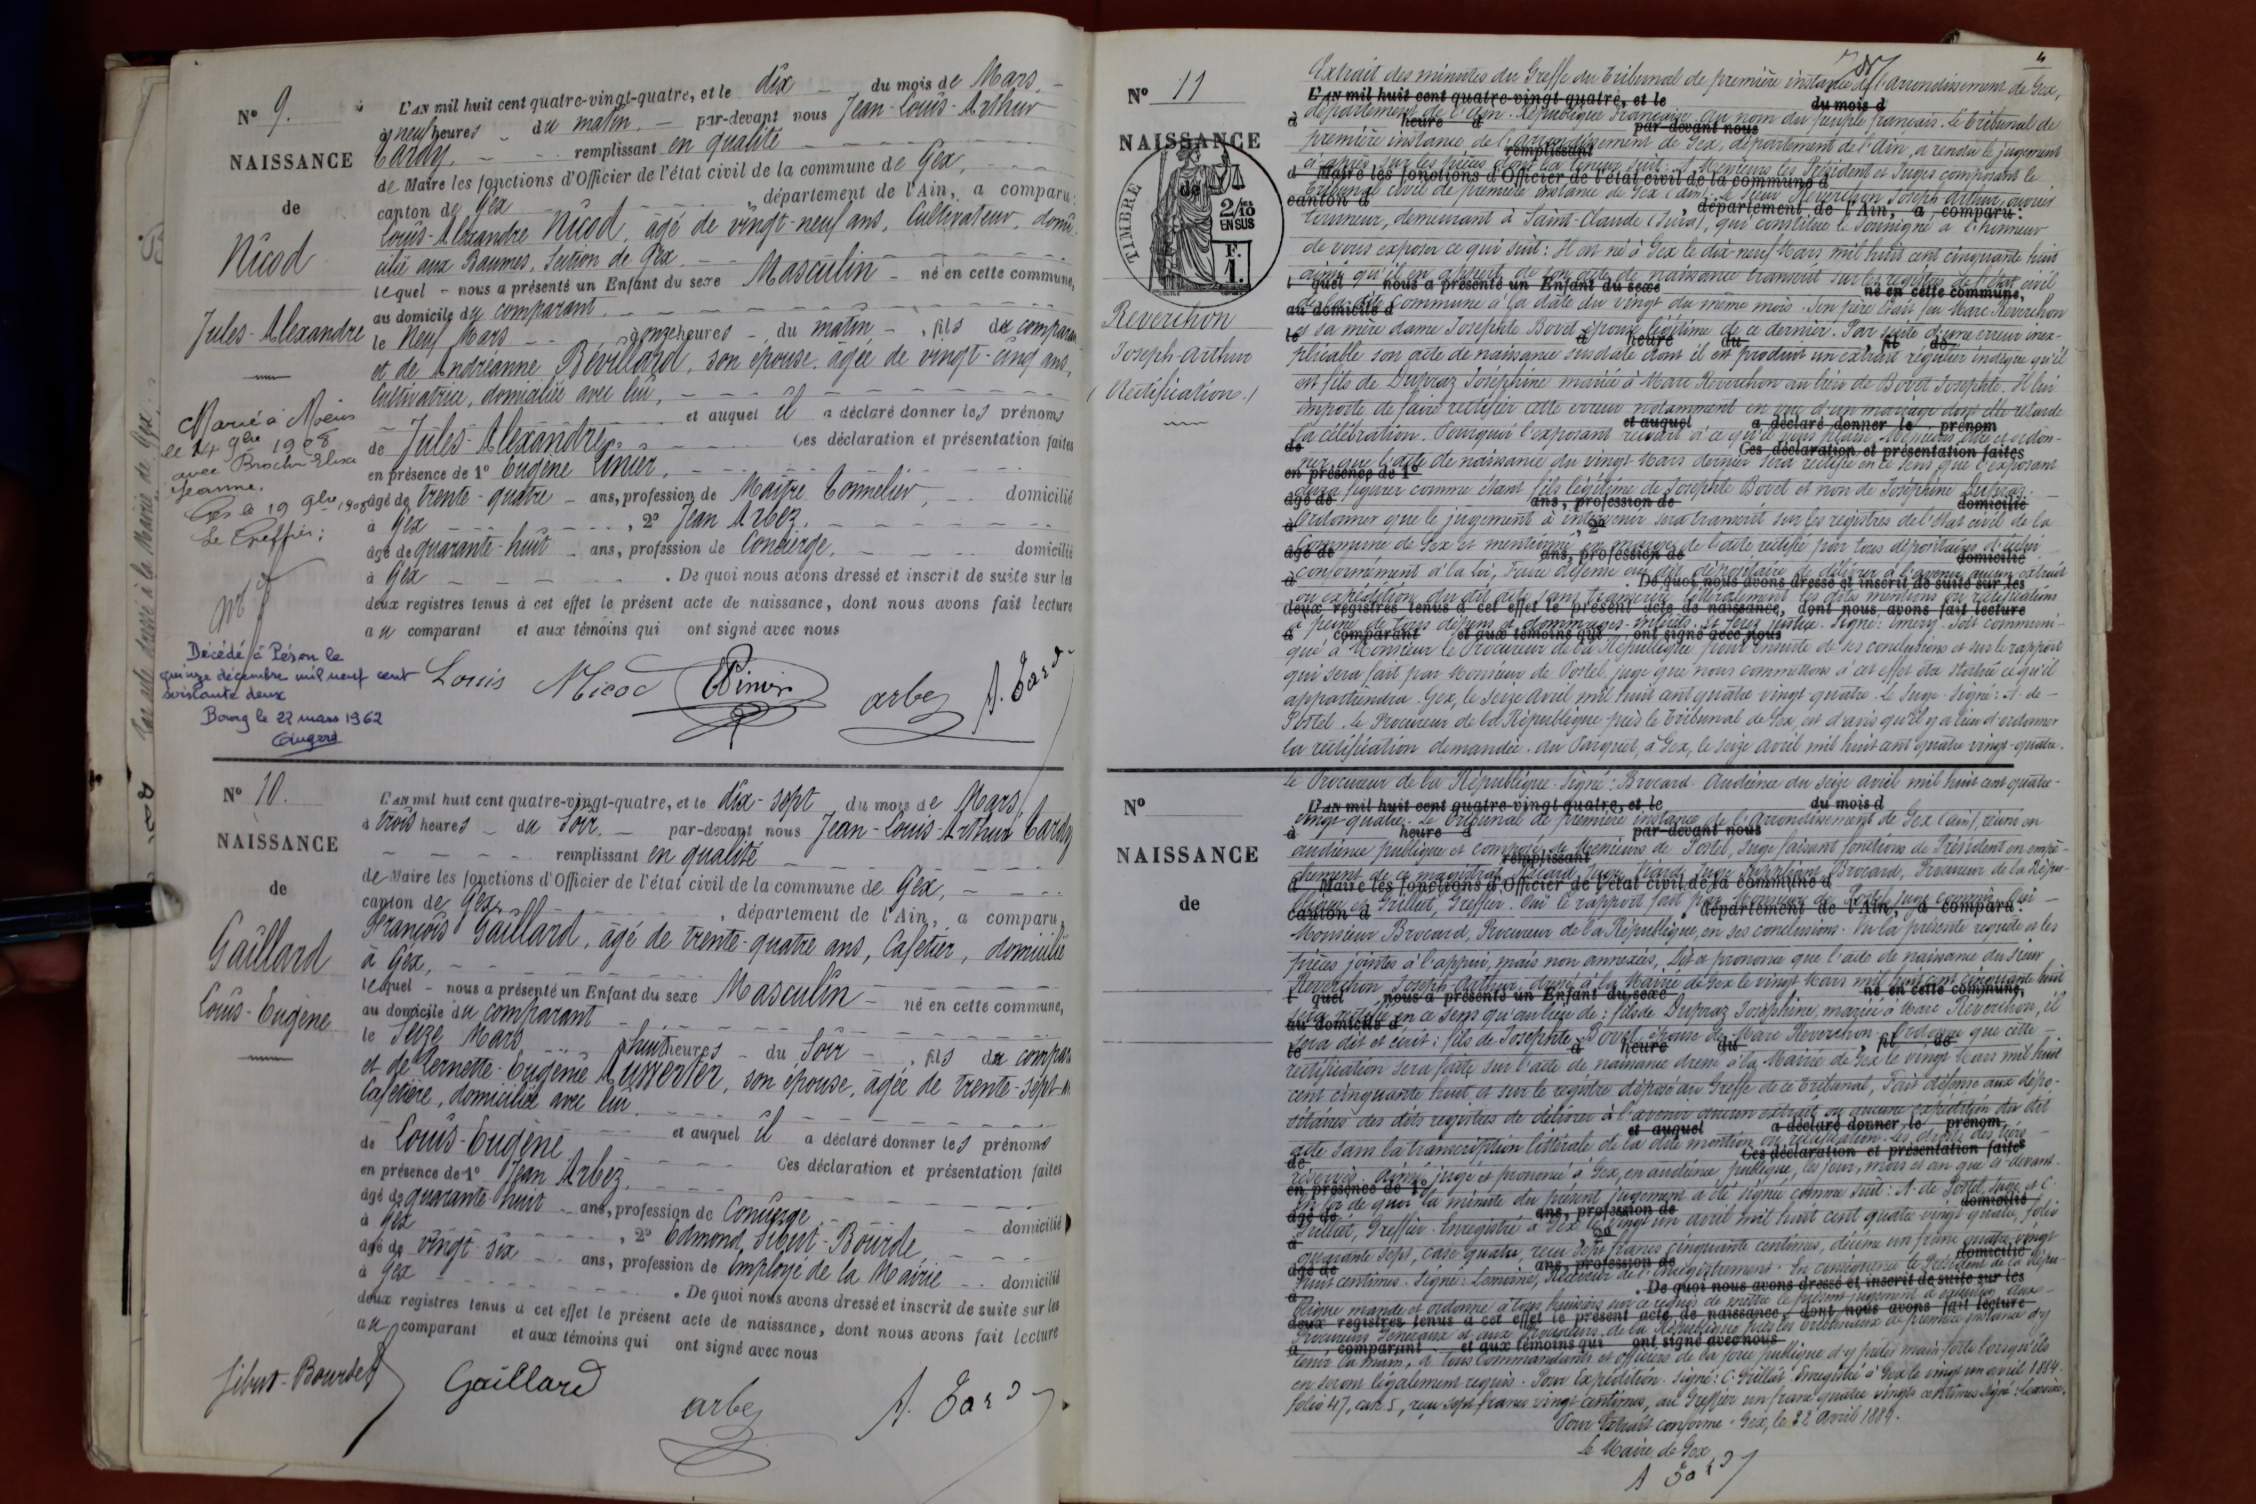 N° 9.
NAISSANCE
de
Nicod
Jules-Alexandre
Marié à
le 14 9bre 1908
avec Elisa
Jeanne.
Gex le 19 9bre 1908
Le Greffier:
Décédé à Péron le
quinze décembre mil neuf cent
soixante deux
Bourg le 22 mars 1962
L'AN mil huit cent quatre-vingt-quatre, et le dix du mois de Mars,
à neuf heures du matin, par-devant nous Jean-Louis-Arthur
Tardy, remplissant en qualité
de Maire les fonctions d'Officier de l'état civil de la commune de Gex,
canton de Gex département de l'Ain, a comparu:
Louis-Alexandre Nicod, âgé de vingt-neuf ans, Cultivateur, domi-
cilié aux Baumes, Section de Gex,
lequel nous a présenté un Enfant du sexe Masculin né en cette commune,
au domicile du comparant,
le Neuf Mars à onze heures du matin, fils du comparant
et de Andréanne Bévillard, son épouse, âgée de vingt-cinq ans,
Cultivatrice, domiciliée avec lui,
et auquel il a déclaré donner les prénoms
de Jules-Alexandre, Ces déclaration et présentation faites
en présence de 1° Eugène Pinier,
âgé de trente-quatre ans, profession de Maître Tonnelier, domicilié
à Gex, 2° Jean Arbez,
âgé de quarante-huit ans, profession de Concierge, domicilié
à Gex. De quoi nous avons dressé et inscrit de suite sur les
deux registres tenus à cet effet le présent acte de naissance, dont nous avons fait lecture
au comparant et aux témoins qui ont signé avec nous
Louis Nicod Pinier arbez A. Tardy
N° 10.
NAISSANCE
de
Gaillard
Louis-Eugène
L'AN mil huit cent quatre-vingt-quatre, et le dix-sept du mois de Mars,
à trois heures du Soir, par-devant nous Jean-Louis-Arthur Tardy
remplissant en qualité
de Maire les fonctions d'Officier de l'état civil de la commune de Gex,
canton de Gex, département de l'Ain, a comparu,
François Gaillard, âgé de trente-quatre ans, Cafetier, domicilié
à Gex,
lequel nous a présenté un Enfant du sexe Masculin né en cette commune,
au domicile du comparant
le Seize Mars à huit heures du Soir, fils du compar
et de Pernette-Eugénie, son épouse, âgée de trente-sept
Cafetière, domiciliée avec lui,
et auquel il a déclaré donner les prénoms
de Louis-Eugène Ces déclaration et présentation faites
en présence de 1° Jean Arbez,
âgé de quarante-huit ans, profession de Concierge domicilié
à Gex, 2° Edmond Sibut-Bourde,
âgé de vingt-six ans, profession de employé de la Mairie domicilié
à Gex. De quoi nous avons dressé et inscrit de suite sur les
deux registres tenus à cet effet le présent acte de naissance, dont nous avons fait lecture
au comparant et aux témoins qui ont signé avec nous
Sibut-Bourde Gaillard arbez A. Tardy
4
N° 11
NAISSANCE
de
TIMBRE
2/10 EN SUS
F. 1.
Reverchon
Joseph-Arthur
(Rectification.)
Extrait des minutes du Greffe du Tribunal de première instance de l'arrondissement de Gex,
L'AN mil huit cent quatre-vingt-quatre, et le du mois d
département de l'Ain. République Française. Au nom du peuple français. Le Tribunal de
à heure d par-devant nous
première instance de l'arrondissement de Gex, département de l'Ain, a rendu le jugement
remplissant
ci-après sur les pièces dont la teneur suit: A Messieurs les Président et Juges composant le
d Maire les fonctions d'Officier de l'état civil de la commune d
Tribunal civil de première instance de Gex (Ain). Le Sieur Reverchon Joseph Arthur, ouvrier
canton d , département de l'Ain, a comparu:
tourneur, demeurant à Saint-Claude (Jura), qui constitue le soussigné a l'honneur
de vous exposer ce qui suit: Il est né à Gex le dix-neuf Mars mil huit cent cinquante huit
ainsi qu'il en appert de son acte de naissance transcrit sur les registres de l'état civil
l quel nous a présenté un Enfant du sexe né en cette commune,
de la dite Commune à la date du vingt du même mois. Son père était feu Marc Reverchon
au domicile d
et sa mère dame Josephte Bovet épouse légitime de ce dernier. Par suite d'une erreur inex-
le à heure du , fil de
plicable son acte de naissance susdaté dont il est produit un extrait régulier indique qu'il
est fils de Dupraz Joséphine mariée à Marc Reverchon au lieu de Bovet Josephte. Il lui
importe de faire rectifier cette erreur notamment en vue d'un mariage dont elle retarde
et auquel a déclaré donner le prénom
la célébration. Pourquoi l'exposant recourt à ce qu'il vous plaise, Messieurs, dire et ordon-
de Ces déclaration et présentation faites
ner que l'acte de naissance du vingt Mars dernier sera rectifié en ce sens que l'exposant
en présence de 1°
devra figurer comme étant fils légitime de Josephte Bovet et non de Joséphine Dupraz.
âgé de ans, profession de domicilié
Ordonner que le jugement à intervenir sera transcrit sur les registres de l'état civil de la
à 2°
Commune de Gex et mentionné en marge de l'acte rectifié par tous dépositaires d'icelui
âgé de ans, profession de domicilié
conformément à la loi, Faire défense au dit dépositaire de délivrer à l'avenir aucun extrait
à . De quoi nous avons dressé et inscrit de suite sur les
ou expédition du dit acte sans transcrire littéralement les dites mentions ou rectifications
deux registres tenus à cet effet le présent acte de naissance, dont nous avons fait lecture
à peine de tous dépens et dommages-intérêts. Et ferez justice. Signé: Emery. Soit communi-
a comparant et aux témoins qui ont signé avec nous
qué à Monsieur le Procureur de la République pour ensuite de ses conclusions et sur le rapport
qui sera fait par Monsieur de Postel, juge que nous commettons à cet effet être statué ce qu'il
appartiendra. Gex, le seize avril mil huit cent quatre vingt-quatre. Le Juge. Signé: A. de
Postel. Le Procureur de la République près le Tribunal de Gex, est d'avis qu'il y a lieu d'ordonner
la rectification demandée. Au Parquet, à Gex, le seize avril mil huit cent quatre vingt-quatre.
N°
NAISSANCE
de
Le Procureur de la République. Signé: Brocard. Audience du seize avril mil huit cent quatre-
L'AN mil huit cent quatre-vingt-quatre, et le du mois d
vingt-quatre. Le Tribunal de première instance de l'arrondissement de Gex (Ain), réuni en
à heure d par-devant nous
audience publique et composé de Messieurs de Postel, Juge faisant fonctions de Président en empê-
remplissant
chement de ce magistrat, Juge suppléant, Brocard, Procureur de la Répu-
d Maire les fonctions d'Officier de l'état civil de la commune d
blique et Grillet, Greffier. Ouï le rapport fait par Monsieur de Postel, juge commis. Ouï
canton d , département de l'Ain, a comparu:
Monsieur Brocard, Procureur de la République, en ses conclusions. Vu la présente requête et les
pièces jointes à l'appui, mais non annexées, Dit et prononce que l'acte de naissance du Sieur
Reverchon Joseph-Arthur, dressé à la Mairie de Gex le vingt Mars mil huit cent cinquante huit
l quel nous a présenté un Enfant du sexe né en cette commune,
sera rectifié en ce sens qu'au lieu de: fils de Dupraz Joséphine, mariée à Marc Reverchon, il
au domicile d
sera dit et écrit: fils de Josephte Bovet, épouse de Marc Reverchon. Ordonne que cette
le à heure du , fil de
rectification sera faite sur l'acte de naissance dressé à la Mairie de Gex le vingt Mars mil huit
cent cinquante huit et sur le registre déposé au Greffe de ce Tribunal, Fait défense aux dépo-
sitaires des dits registres de délivrer à l'avenir aucun extrait ou aucune expédition du dit
et auquel a déclaré donner le prénom
acte sans la transcription littérale de la dite mention ou rectification. Les droits des tiers
de Ces déclaration et présentation faites
réservés. Ainsi jugé et prononcé à Gex, en audience publique, les jour, mois et an que ci-devant.
en présence de 1°
En foi de quoi la minute du présent jugement a été signée comme suit: A. de Postel, juge et C.
âgé de ans, profession de domicilié
Grillet, Greffier. Enregistré à Gex le vingt un avril mil huit cent quatre-vingt quatre, folio
à 2°
quarante sept, case quatre, reçu sept francs cinquante centimes, décime un franc quatre-vingt
âgé de ans, profession de domicilié
huit centimes. Signé: Lemoine, Receveur de l'Enregistrement. En conséquence le Président de la Répu-
à . De quoi nous avons dressé et inscrit de suite sur les
blique mande et ordonne à tous huissiers sur ce requis de mettre le présent jugement à exécution, aux
deux registres tenus à cet effet le présent acte de naissance, dont nous avons fait lecture
Procureurs Généraux et aux Procureurs de la République près les Tribunaux de première instance d'y
a comparant et aux témoins qui ont signé avec nous
tenir la main, à tous Commandants et officiers de la force publique d'y prêter main-forte lorsqu'ils
en seront légalement requis. Pour Expédition. Signé: C. Grillet. Enregistré à Gex le vingt un avril 1884.
folio 47, case 5, reçu sept francs vingt centimes, au Greffier un franc quatre vingts centimes. Signé: Lemoine.
Pour Extrait conforme. Gex, le 22 avril 1884.
Le Maire de Gex
A Tardy